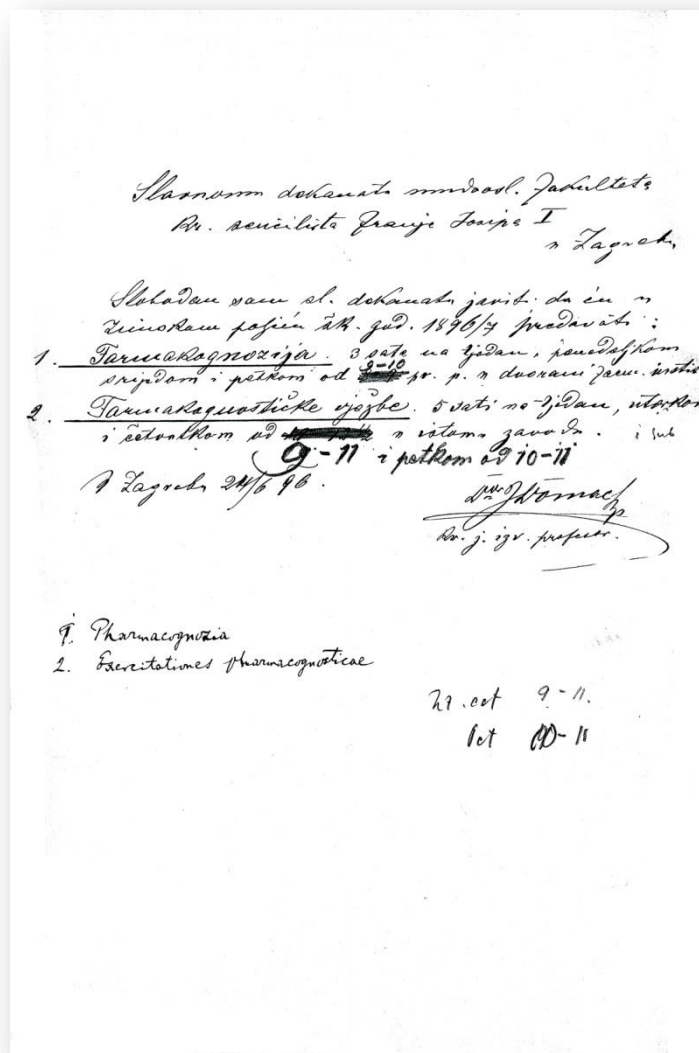 Slavnomu dekanatu mudrosl. fakulteta
kr. sveučilišta Franje Josipa I
u Zagrebu
Slobodan sam sl. dekanatu javiti da ću u
zimskom poljeću šk. god. 1896/7 predavati:
1. Farmakognozija. 3 sata na tjedan, ponedjeljkom
srijedom i petkom od 9-10 pr. p. u dvorani farm.
2. Farmakognostičke vježbe. 5 sati na tjedan, utorkom
i četvrtkom od u istomu zavodu. i sub
9-11 i petkom od 10-11
U Zagrebu 24/6 96.
Dr J Domac
kr. j. izv. profesor.
1. Pharmacognosia
2. Exercitationes pharmacognosticae
cet 9-11.
Pet 10-11